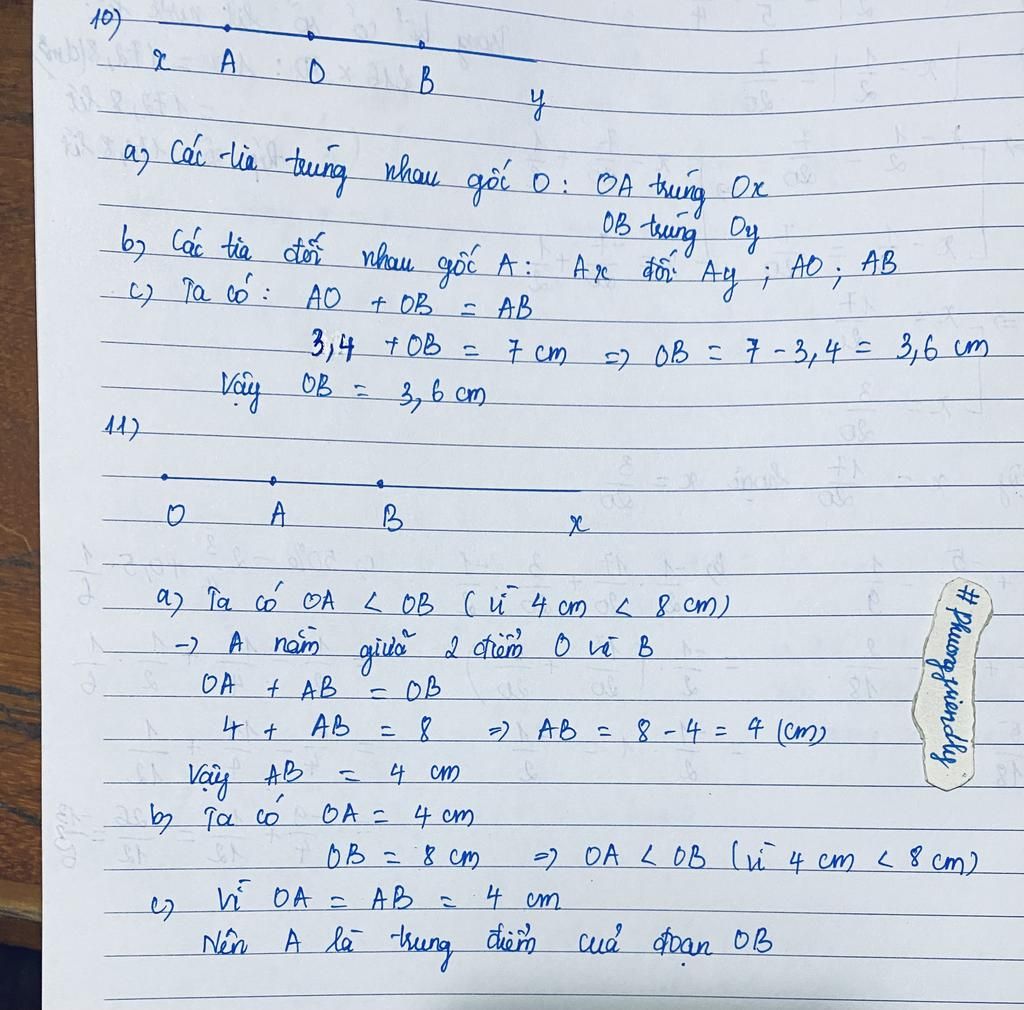 10)
x A O B y
a) Các tia trùng nhau gốc O : OA trùng Ox
OB trùng Oy
b) Các tia đối nhau gốc A : Ax đối Ay ; AO ; AB
c) Ta có : AO + OB = AB
3,4 + OB = 7 cm => OB = 7 - 3,4 = 3,6 cm
Vậy OB = 3,6 cm
11)
O A B x
a) Ta có OA < OB ( vì 4 cm < 8 cm)
-> A nằm giữa 2 điểm O và B
OA + AB = OB
4 + AB = 8 => AB = 8 - 4 = 4 (cm)
Vậy AB = 4 cm
b) Ta có OA = 4 cm
OB = 8 cm => OA < OB (vì 4 cm < 8 cm)
c) Vì OA = AB = 4 cm
Nên A là trung điểm của đoạn OB
#phuongfriendly